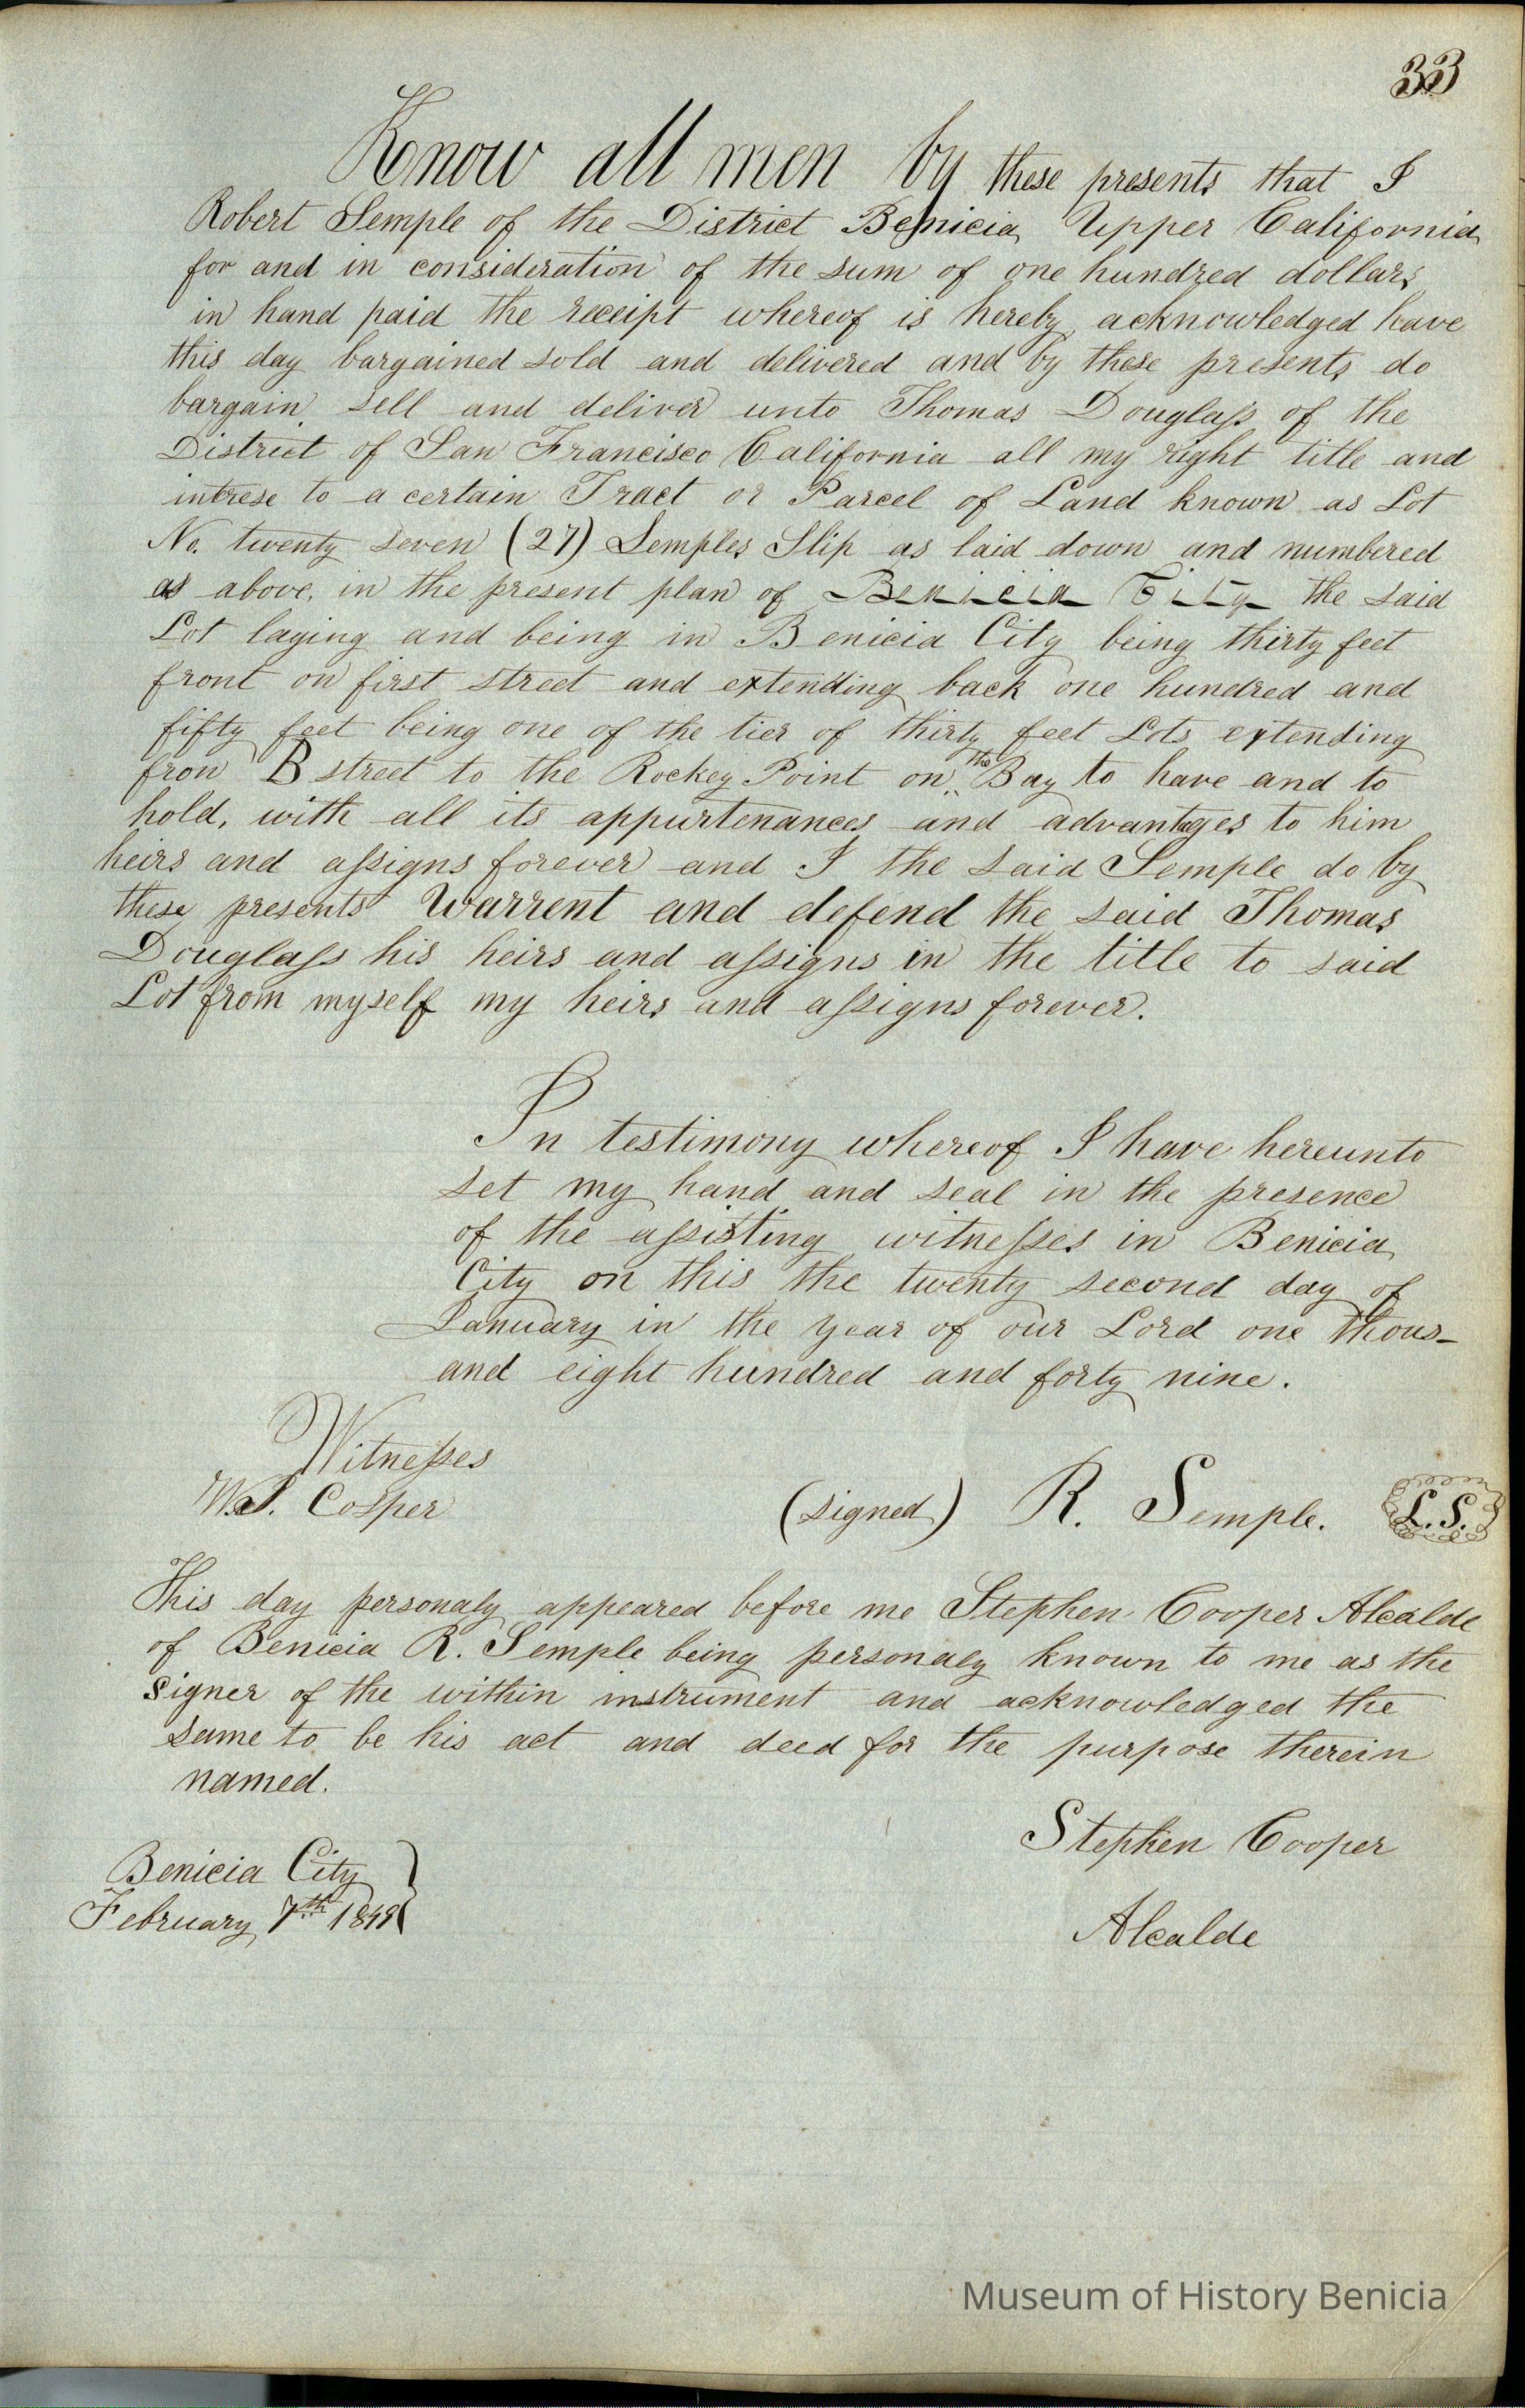 33
Know all men by these presents that I
Robert Semple of the District Benicia Upper California
for and in consideration of the sum of one hundred dollars
in hand paid the receipt whereof is hereby acknowledged have
this day bargained sold and delivered and by these presents do
bargain sell and deliver unto Thomas Douglass of the
District of San Francisco California all my right title and
intrese to a certain Tract or Parcel of Land known as Lot
No. twenty seven (27) Semples Slip as laid down and numbered
as above, in the present plan of Benicia City the said
Lot laying and being in Benicia City being thirty feet
front on first street and extending back one hundred and
fifty feet being one of the tier of thirty feet Lots extending
fron B street to the Rockey Point on the Bay to have and to
hold, with all its appurtenances and advantages to him
heirs and assigns forever and I the said Semple do by
these presents Warrent and defend the said Thomas
Douglass his heirs and assigns in the title to said
Lot from myself my heirs and assigns forever.
In testimony whereof I have hereunto
set my hand and seal in the presence
of the assisting witnesses in Benicia
City on this the twenty second day of
January in the year of our Lord one thous-
and eight hundred and forty nine.
Witnesses
Cosper
(signed) R. Semple. L.S.
This day personaly appeared before me Stephen Cooper Alcalde
of Benicia R. Semple being personaly known to me as the
signer of the within instrument and acknowledged the
same to be his act and deed for the purpose therein
named.
Stephen Cooper
Benicia City
February 7th 1849
Alcalde
Museum of History Benicia